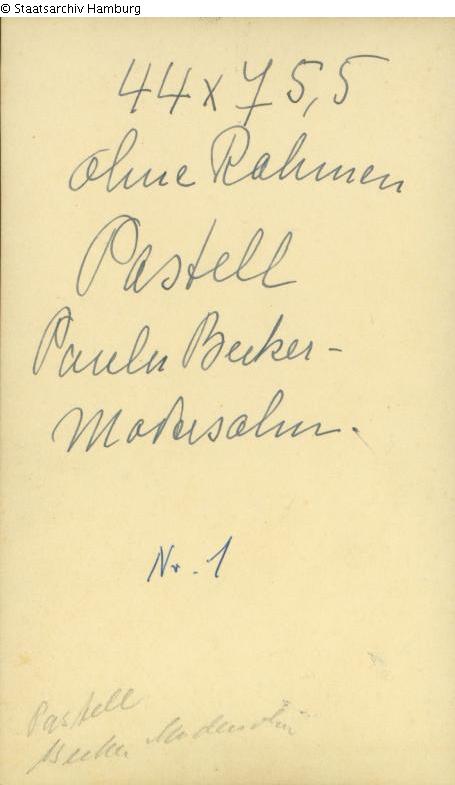 © Staatsarchiv Hamburg
44 x 75,5
ohne Rahmen
Pastell
Paula Becker-
Modersohn.
Nr. 1
Pastell
Becker Modersohn